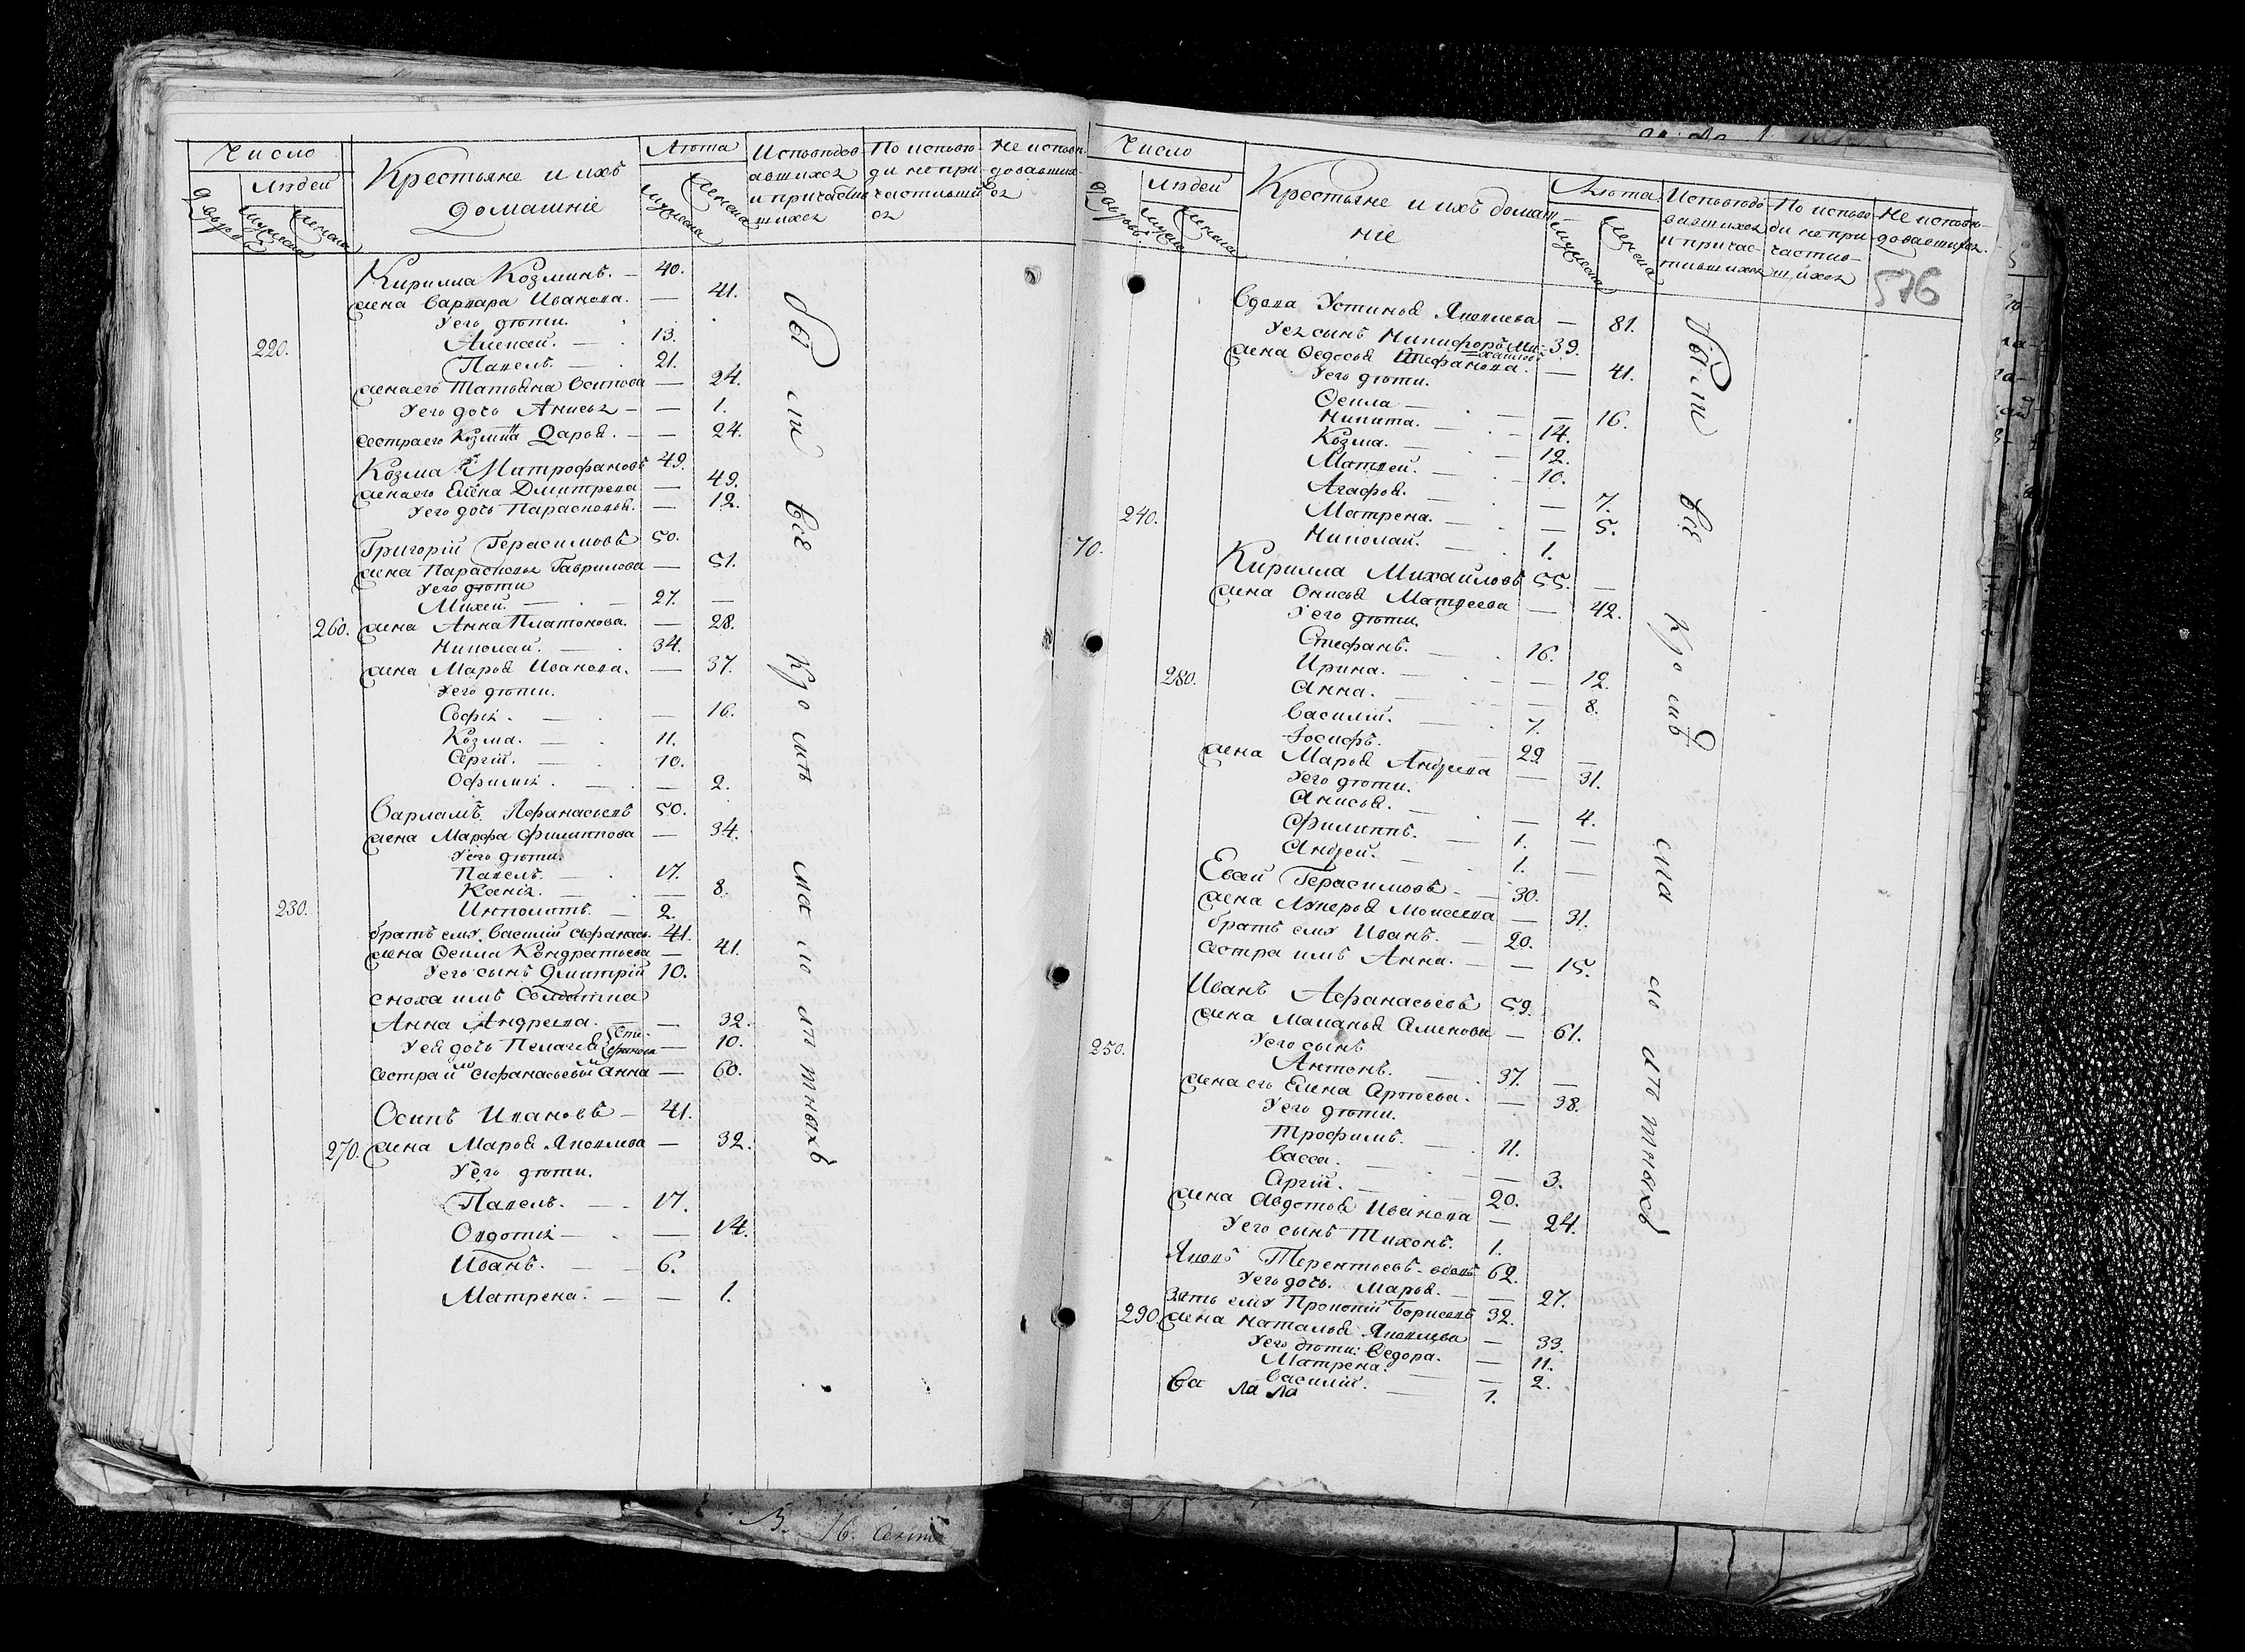 Число
Людей
Дворовъ
Мужеска
Женска
Крестьяне и ихъ
домашніе
Лѣта
Мужеска
Женска
Исповѣдов-
авшихся
и причасти
шихся
По исповѣ-
ди непри-
частивший
ся
Не исповѣ-
довавших-
ся
Кирилла Козминъ. — 40.
жена Варвара Иванова. — 41.
У его дѣти.
220. Алексей. — 13.
Павелъ. — 21.
жена его Татьяна Осипова — 24.
У его дочь Анисья — — 1.
сестра его Козмина Дарья. — — 24.
Козма Митрофановъ 49.
жена его Елена Дмитрева — 49.
У его дочь Парасковья. — 12.
Григорій Герасимовъ 50.
жена Парасковья Гаврилова — 51.
У его дѣти
Михей. — 27. —
260. жена Анна Платонова. — 28.
Николай. — 34.
жена Марья Иванова. — 37.
У его дѣти.
Софья. — — 16.
Козма. — 11.
Сергій. — 10.
Офимья. — — 2.
Варламъ Афанасьевъ 50.
жена Марфа Филиппова — 34.
У его дѣти.
Павелъ. — 17.
Ксенія. — — 8.
230. Ипполитъ. — 2.
братъ ему Василій Афанась. 41.
жена Фекла Кондратьева — 41.
У его сынъ Дмитрій 10.
сноха имъ Солдатка
Анна Андреева. — — 32.
У ей дочь Пелагея Сте-
фанова — 10.
Сестра имъ Афанасьевымъ Анна — 60.
Осипъ Ивановъ — 41.
270. жена Марья Яковлева — 32.
У его дѣти.
Павелъ. — 17.
Овдотья — — 14.
Иванъ. — 6.
Матрена. — — 1.
были все кро мѣ ма ло лѣ тныхъ
Число
Людей
Дворовъ
Мужеска
Женска
Крестьяне и ихъ домаш-
ніе
Лѣта
Мужеска
Женска
Исповѣдо
вавшихся
и причас-
тившихся
По исповѣ
ди непри-
частив-
шихся
Не исповѣ-
довавшихся.
576
Вдова Устинья Яковлева — 81.
У ея сынъ Никифоръ Ми-
хайловъ 39.
жена Федосья Стефанова. — 41.
У его дѣти.
Фекла — — 16.
Никита. — 14.
Козма. — 12.
Матвей. — 10.
Агафья. — — 7.
240. Матрена. — — 5.
Николай. — 1.
70. Кирилла Михайловъ 55. —
жена Онисья Матвеева — 42.
У его дѣти.
Стефанъ. — 16.
280. Ирина. — — 12.
Анна. — — 8.
Василій. — 7.
Іосифъ. 29 —
жена Марья Андреева — 31.
У его дѣти.
Анисья. — — 4.
Филиппъ. — 1. —
Андрей. — 1. —
Евсей Герасимовъ — 30.
жена Лукерья Моисеева — 31.
братъ ему Иванъ. — 20.
сестра имъ Анна. — — 15.
Иванъ Афанасьевъ 59.
жена Маланья Семенова — 61.
У его сынъ
250. Антонъ. — 37. —
жена его Елена Сергѣева. — 38.
У его дѣти.
Трофимъ. — 11.
Васса. — — 3.
Сергій. — 20.
жена Авдотья Иванова — 24.
У его сынъ Тихонъ. 1.
Яковъ Терентьевъ вдовъ 62.
У его дочь. Марья. — — 27.
Зять ему Прокопій Борисовъ 32.
290. жена Наталья Яковлева — 33.
У его дѣти: Федора. — 11.
Матрена. — — 2.
Василій. — 1.
были все кро мѣ ма ло лѣ тныхъ